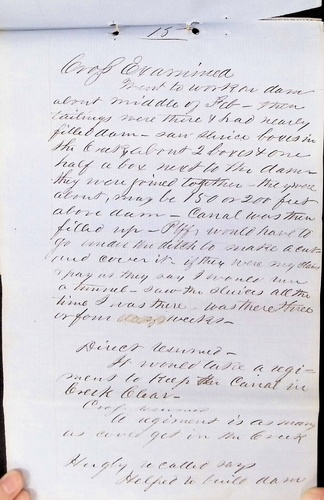 15
Cross Examined
Went to work on dam
about middle of Feb - then
tailings were there & had nearly
filled dam - saw sluice boxes in
the Creek about 2 boxes & one
half a box next to the dam -
they were joined together - they were
about, may be 150 or 200 feet
above dam - Canal was then
filled up - Plff, would have to
go under the ditch to make a cut
and cover it - if they were my claims
& pay as they say I would run
a tunnel - saw the sluices all the
time I was there - was there three
or four weeks -
Direct resumed -
It would take a regi-
ment to keep the Canal in
Creek Clear -
Cross resumed
A regiment is as many
as could get in the Creek
recalled says
Helped to build dam